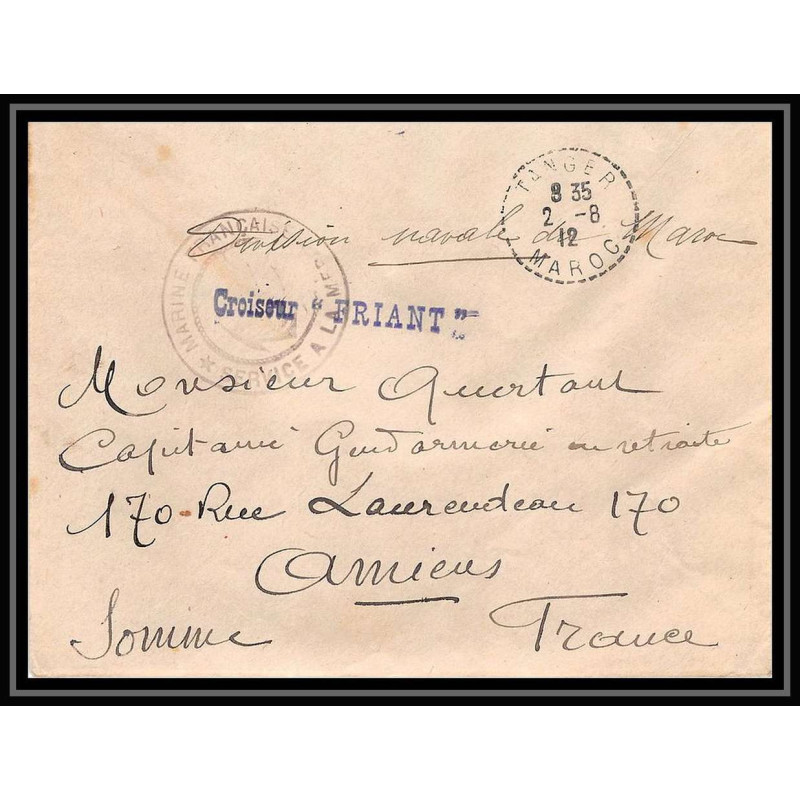 TANGER
8 35
2 -8
12
MAROC
Division navale du Maroc
MARINE FRANÇAISE
SERVICE A LA MER
Croiseur "FRIANT"
Monsieur Quertant
Capitaine Gendarmerie en retraite
170 - Rue Laurendeau 170
Amiens
Somme France